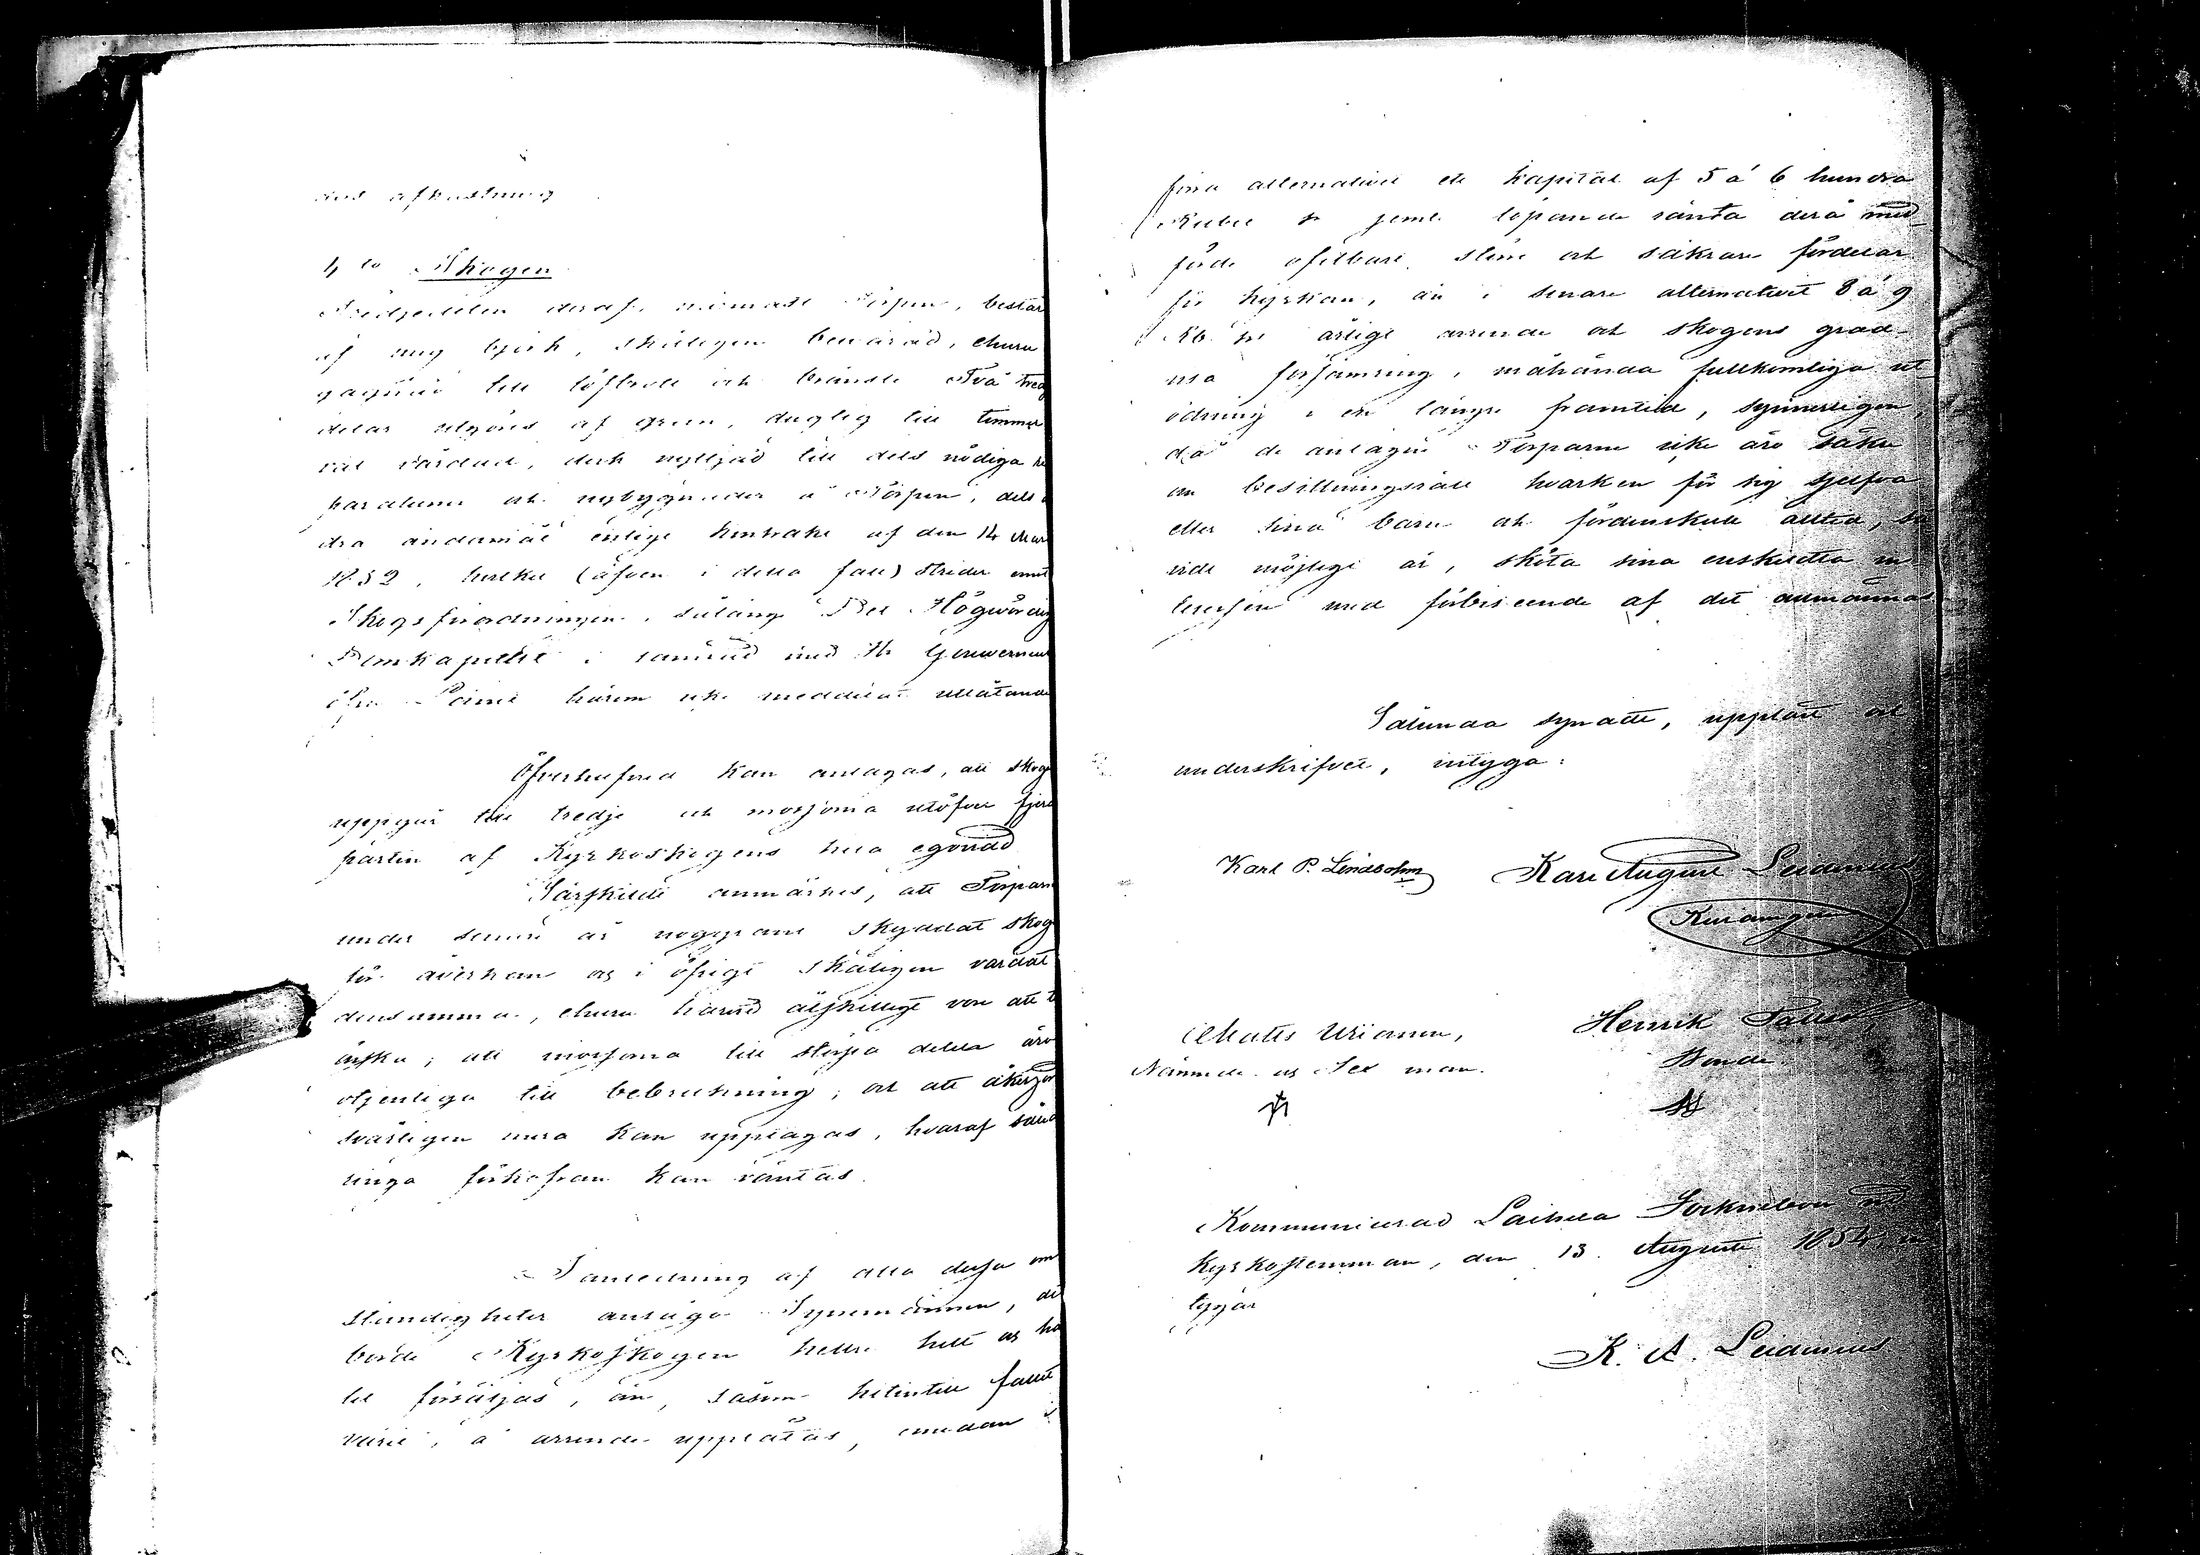 afkastning
4 to Skogen
Tredjedelen deraf, närmast Torpen, består
af ung björk, skäligen bevarad, ehuru
till löfbrott och bränsle Två tred
delar utgöras af gran, duglig till timmer
väl vårdad, dock nyttjad till dels nödiga re
parationer och nybygnader å Torpen, dels
dra ändamål enligt kontrakt af den 14 Mars
1852, hvilket (äfven i detta fall) strider emot
Skogsförordningen, sålänge Det Högwördig
Domkapitlet i samråd med Hr Gouverneur
härom icke meddelat utlåtande
Öfverhufvud kan antagas, att skog
uppgår till tredje och mossjorna utöfver fjerde
parten af Kyrkoskogens hela egovidd
Särskildt anmärkes, att Torparne
under senare år noggrant skyddat skog
för åverkan og i öfrigt skäligen vårdat
densamma, ehuru härvid åtskilligt vore att
önska; att mossjorna till större delen äro
otjenliga till bebrukning; och att åkerjord
svårligen mera kan upptagas, hvaraf
ringa förkofran kan väntas.
I anledning af alla dessa om
ständigheter ansågo Synemännen, att
borde Kyrkoskogen hellre helt og hå
let försäljas, än, såsom hittintill fallet
varit, å arrende upplåtas, emedan i
förra alternativet ett kapital af 5 à 6 hundra
Rubel Sr jemte löpande ränta derå med
förde ofelbart större och säkrare fördelar
för kyrkan, än i senare alternativet 8 à 9
Rb. Sr årligt arrende och skogens grad
visa försämring, måhända fullkomliga ut
ödning i en längre framtid, synnerligen,
då de antagne Torparne icke äro säkre
om besittningsrätt hvarken för sig sjelfva
eller sina barn och fördenskull alltid, så
vidt möjligt är, sköta sina enskildta in
tressen med förbiseende af det allmännas
Sålunda synadt, uppläst och
underskrifvet, intyga:
Karl P. Lindsohm Karl August Leidenius
Matts Uriamn, Henrik
Nämnde. og Sex man. Bonde.
Kommunicerad Laihela Sockneboer vid
Kyrkostemman, den 13. Augusti 1854, in
tygar
K. A. Leidenius